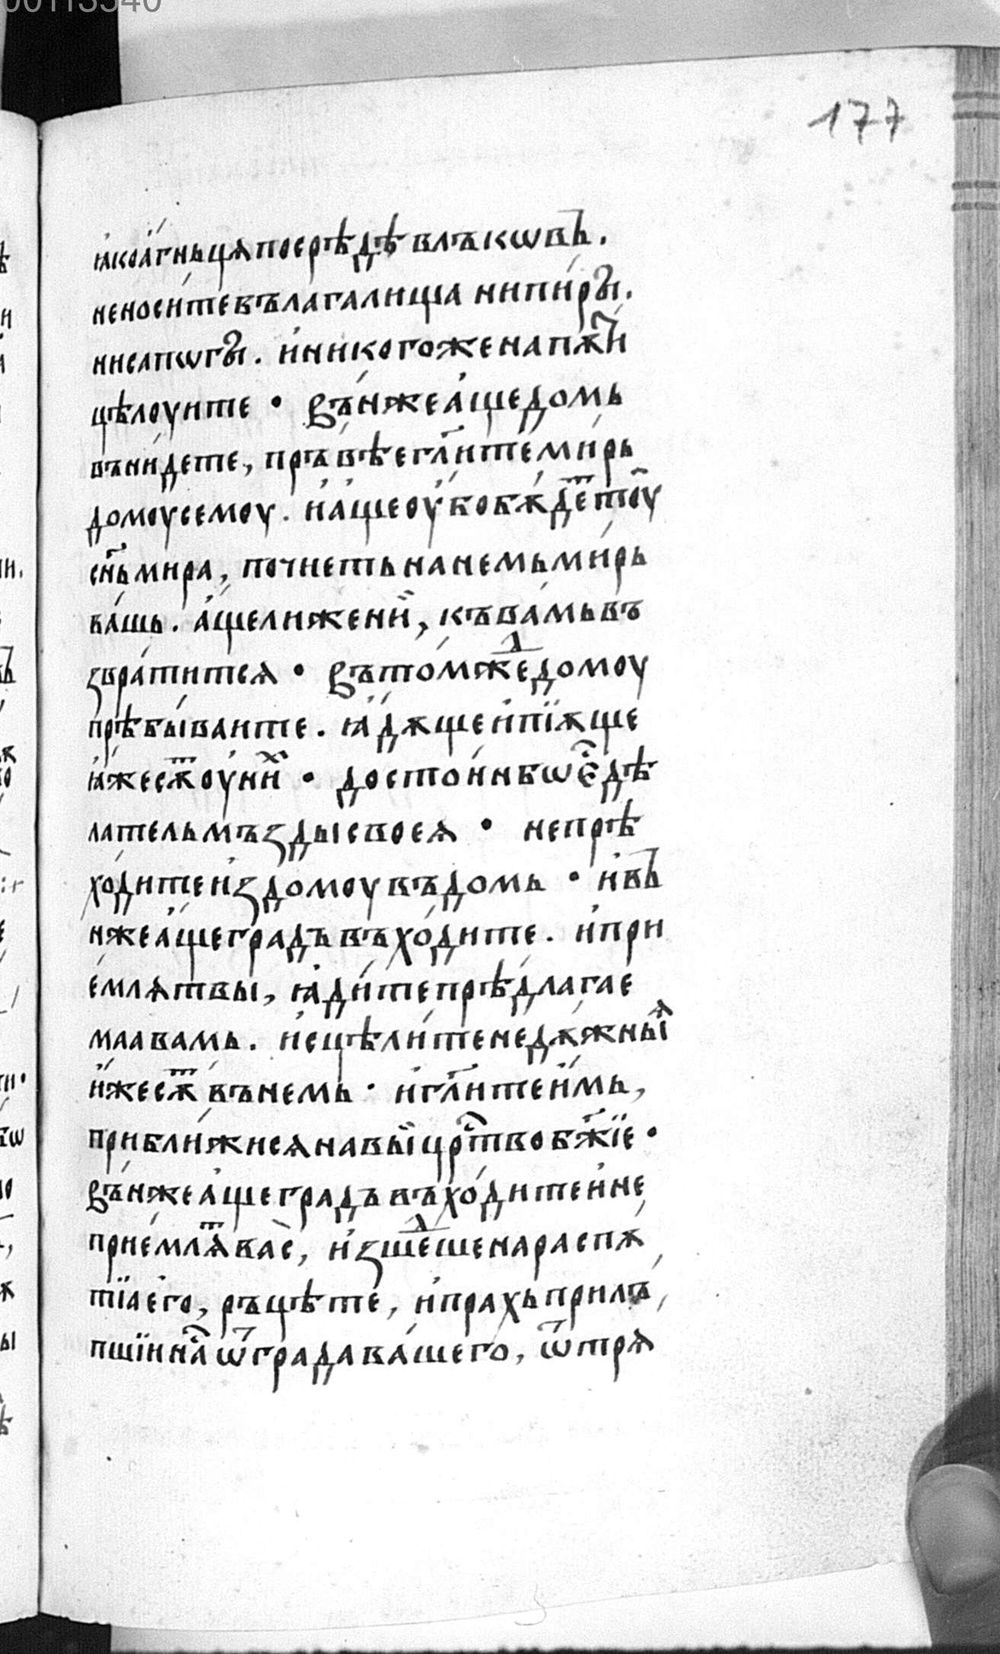 00113540
177
ꙗкоагньцѧ посрѣдѣ влъкѡвь.
неносите въ лагалища нипиры.
нисапѡгы. и никогоже напѫти
цѣлоуите • Вънже аще домь
вънидете, пръвѣе гл҃ите мирь
домоу семоу. и аще оубо бѫдет тоу
сн҃ь мира, почиеть нанемь мирь
вашь. ащелиже ни, къвамь въ
звратитсѧ • Вътомжⷣе домоу
прѣбываите. ꙗдѫще и пїѫще
ꙗже сѫⷮ оу них • достоин бѡ еⷭ҇ дѣ
латель мъзды своеѧ • не прѣ
ходите из домоу въ домь • и въ
нже аще градъ въходите. и при
емлѧт вы, ꙗдите прѣдлагае
маа вамь. и исцѣлите недѫжныѧ
иже сѫⷮ въ немь · и гл҃ите имь,
приближисѧ на вы црⷭ҇тво бж҃їе •
Вънже аще градъ въходите и не
приемлѧⷮ вас, изшеⷣше на распѫ
тїа его, ръцѣте, и прахь прилъ
пшїи нⷭ҇а ѿ града вашего, ѿтрѧ